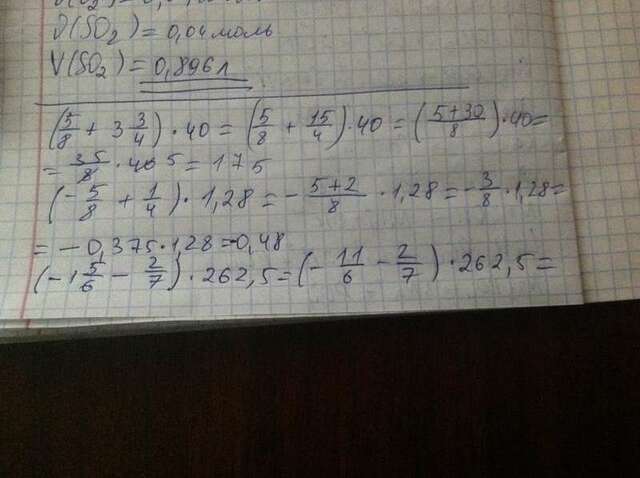 ν(SO₂) = 0,04 моль
V(SO₂) = 0,896 л
(5/8 + 3 3/4) · 40 = (5/8 + 15/4) · 40 = ((5+30)/8) · 40 =
= 35/8 · 40 5 = 175
(-5/8 + 1/4) · 1,28 = - (5+2)/8 · 1,28 = -3/8 · 1,28 =
= -0,375 · 1,28 = -0,48
(-1 5/6 - 2/7) · 262,5 = (-11/6 - 2/7) · 262,5 =